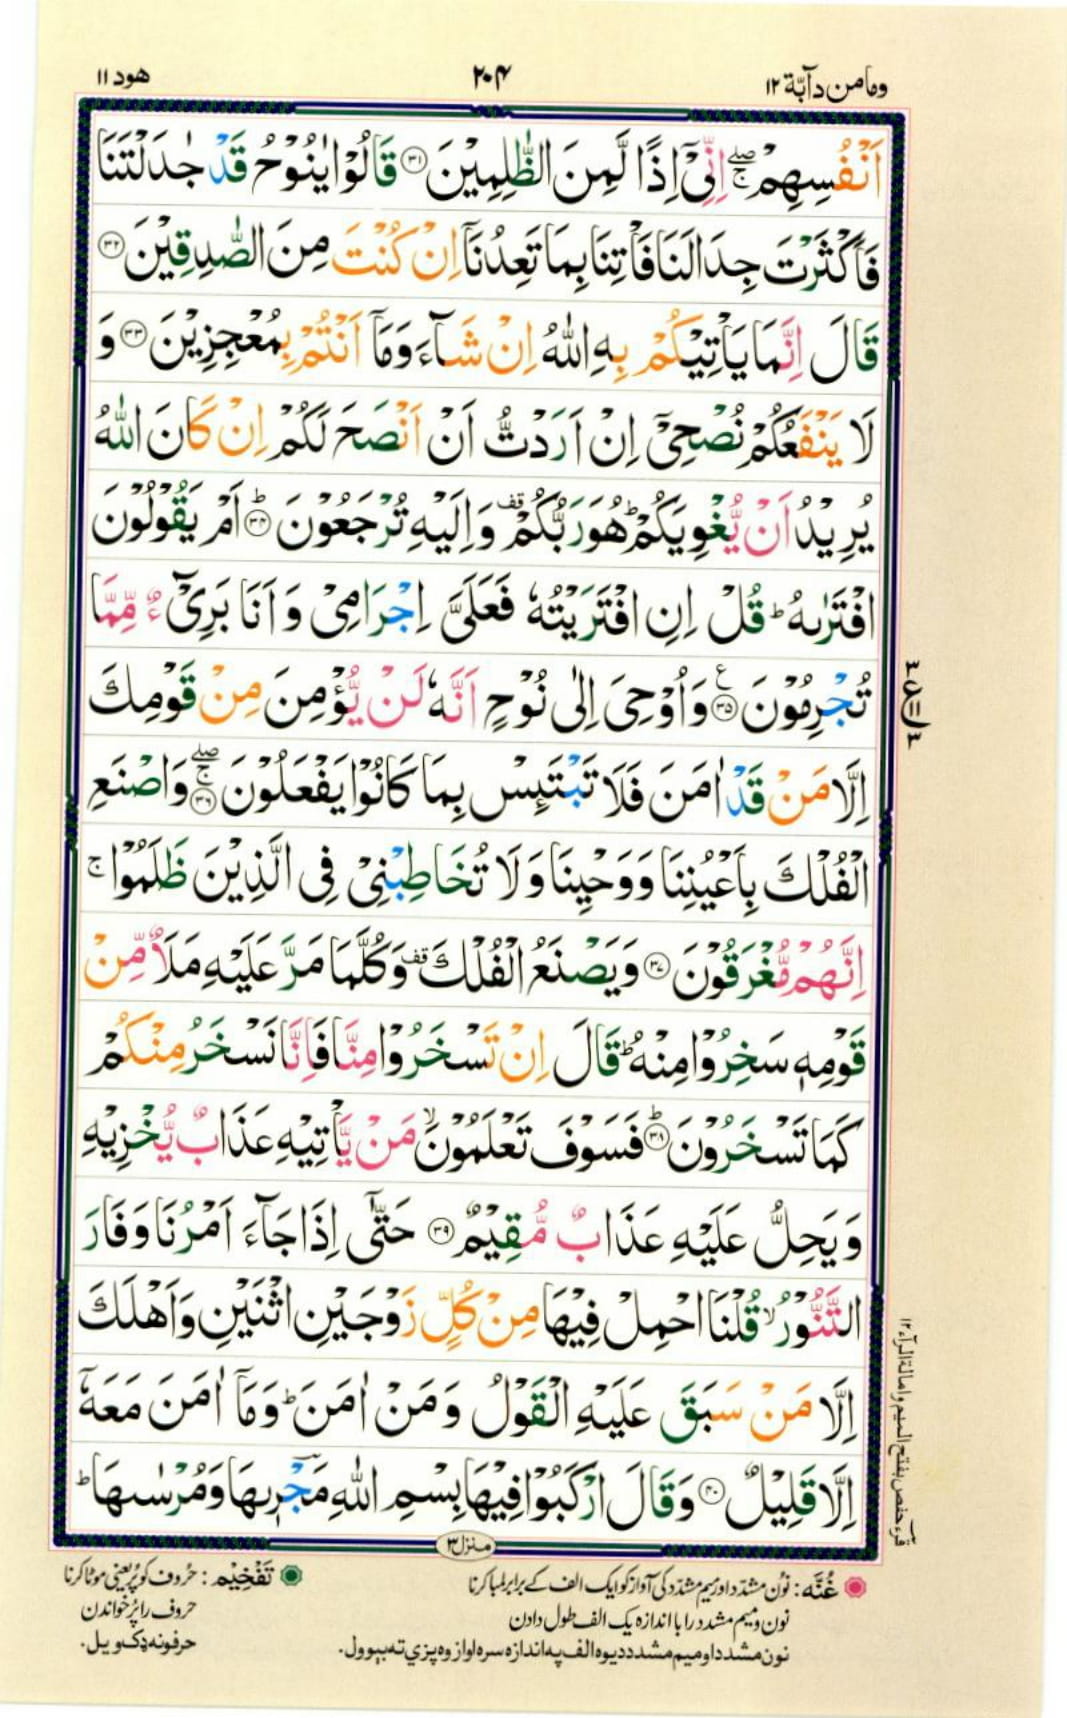 وما من دآبّة ١٢
٢٠۴
هود ١١
اَنْفُسِهِمْ ۖۚ اِنِّىْٓ اِذًا لَّمِنَ الظّٰلِمِيْنَ ۳۱ قَالُوْا يٰنُوْحُ قَدْ جٰدَلْتَنَا
فَاَكْثَرْتَ جِدَالَنَا فَاْتِنَا بِمَا تَعِدُنَاۤ اِنْ كُنْتَ مِنَ الصّٰدِقِيْنَ ۳۲
قَالَ اِنَّمَا يَاْتِيْكُمْ بِهِ اللّٰهُ اِنْ شَآءَ وَمَاۤ اَنْتُمْ بِمُعْجِزِيْنَ ۳۳ وَ
لَا يَنْفَعُكُمْ نُصْحِىْٓ اِنْ اَرَدْتُّ اَنْ اَنْصَحَ لَكُمْ اِنْ كَانَ اللّٰهُ
يُرِيْدُ اَنْ يُّغْوِيَكُمْ ؕ هُوَ رَبُّكُمْ قف وَاِلَيْهِ تُرْجَعُوْنَ ؕ اَمْ يَقُوْلُوْنَ
افْتَرٰىهُ ؕ قُلْ اِنِ افْتَرَيْتُهٗ فَعَلَىَّ اِجْرَامِىْ وَاَنَا بَرِىْٓءٌ مِّمَّا
تُجْرِمُوْنَ ۳۵ ع وَاُوْحِىَ اِلٰى نُوْحٍ اَنَّهٗ لَنْ يُّؤْمِنَ مِنْ قَوْمِكَ
اِلَّا مَنْ قَدْ اٰمَنَ فَلَا تَبْتَئِسْ بِمَا كَانُوْا يَفْعَلُوْنَ ۳۶ ۖۚ وَاصْنَعِ
الْفُلْكَ بِاَعْيُنِنَا وَوَحْيِنَا وَلَا تُخَاطِبْنِىْ فِى الَّذِيْنَ ظَلَمُوْا ۚ
اِنَّهُمْ مُّغْرَقُوْنَ ۳۷ وَيَصْنَعُ الْفُلْكَ قف وَكُلَّمَا مَرَّ عَلَيْهِ مَلَاٌ مِّنْ
قَوْمِهٖ سَخِرُوْا مِنْهُ ؕ قَالَ اِنْ تَسْخَرُوْا مِنَّا فَاِنَّا نَسْخَرُ مِنْكُمْ
كَمَا تَسْخَرُوْنَ ۳۸ ؕ فَسَوْفَ تَعْلَمُوْنَ ۙ مَنْ يَّاْتِيْهِ عَذَابٌ يُّخْزِيْهِ
وَيَحِلُّ عَلَيْهِ عَذَابٌ مُّقِيْمٌ ۳۹ حَتّٰٓى اِذَا جَآءَ اَمْرُنَا وَفَارَ
التَّنُّوْرُ ۙ قُلْنَا احْمِلْ فِيْهَا مِنْ كُلٍّ زَوْجَيْنِ اثْنَيْنِ وَاَهْلَكَ
اِلَّا مَنْ سَبَقَ عَلَيْهِ الْقَوْلُ وَمَنْ اٰمَنَ ؕ وَمَاۤ اٰمَنَ مَعَهٗۤ
اِلَّا قَلِيْلٌ ۴۰ وَقَالَ ارْكَبُوْا فِيْهَا بِسْمِ اللّٰهِ مَجْؔرٖىهَا وَمُرْسٰىهَا ؕ
منزل ٣
غُنَّه: نون مشدّد اور میم مشدّد کی آواز کو ایک الف کے برابر لمبا کرنا
نون و میم مشدد را با اندازه یک الف طول دادن
نون مشدد او میم مشدد دیوه الف په اندازه سره اواز وه پزې ته بېوول.
تَفْخِيْم: حُروف کو پُر یعنی موٹا کرنا
حروف را پُر خواندن
حرفونه ډک ویل.